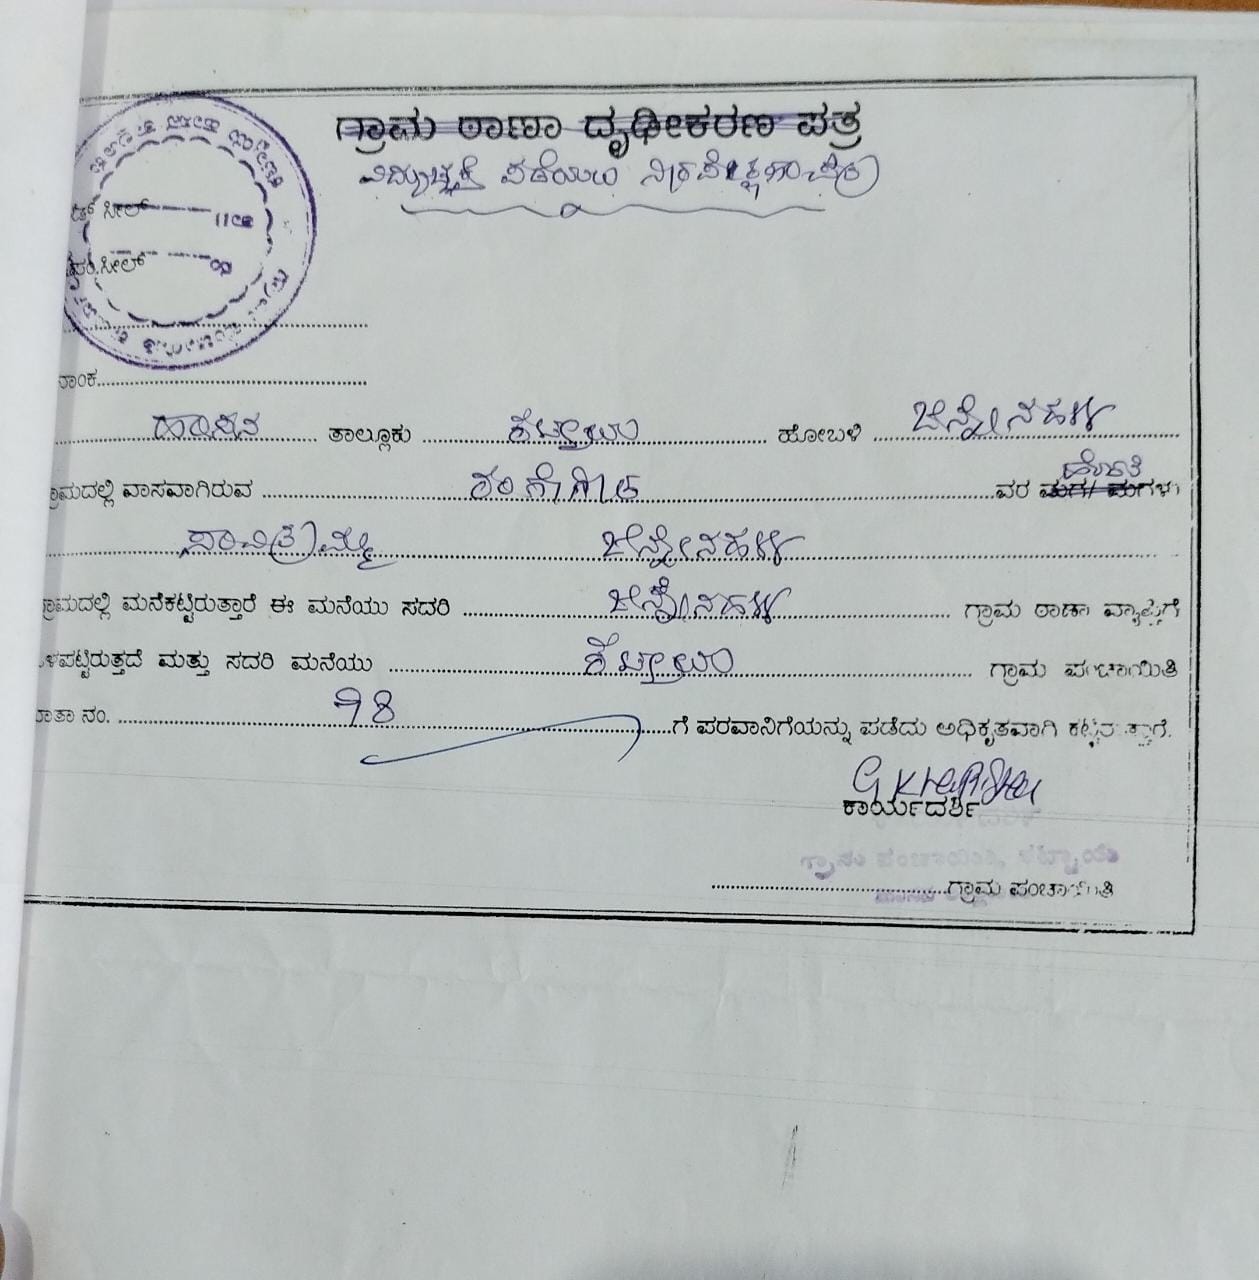 ಗ್ರಾಮ ಠಾಣಾ ದೃಢೀಕರಣ ಪತ್ರ
ವಿದ್ಯುಚ್ಛಕ್ತಿ ಪಡೆಯಲು ನಿರಪೇಕ್ಷಣಾ ಪತ್ರ
ಸೀಲ್
ಸೀಲ್
ಹಾಸನ ತಾಲ್ಲೂಕು ಕಟ್ಟಾಯ ಹೋಬಳಿ ಚನ್ನೇನಹಳ್ಳಿ
ಹೆಂಡತಿ
ಗ್ರಾಮದಲ್ಲಿ ವಾಸವಾಗಿರುವ ರಂಗೇಗೌಡ ವರ ಮಗ/ ಮಗಳು
ಸಾವಿತ್ರಮ್ಮ ಚನ್ನೇನಹಳ್ಳಿ
ಗ್ರಾಮದಲ್ಲಿ ಮನೆಕಟ್ಟಿರುತ್ತಾರೆ ಈ ಮನೆಯು ಸದರಿ ಚನ್ನೇನಹಳ್ಳಿ ಗ್ರಾಮ ಠಾಣಾ ವ್ಯಾಪ್ತಿಗೆ
ಳಪಟ್ಟಿರುತ್ತದೆ ಮತ್ತು ಸದರಿ ಮನೆಯು ಕಟ್ಟಾಯ ಗ್ರಾಮ ಪಂಚಾಯಿತಿ
ಖಾತಾ ನಂ. 98 ಗೆ ಪರವಾನಿಗೆಯನ್ನು ಪಡೆದು ಅಧಿಕೃತವಾಗಿ
ಕಾರ್ಯದರ್ಶಿ
ಗ್ರಾಮ ಪಂಚಾಯಿತಿ, ಕಟ್ಟಾಯ
ಗ್ರಾಮ ಪಂಚಾಯಿತಿ